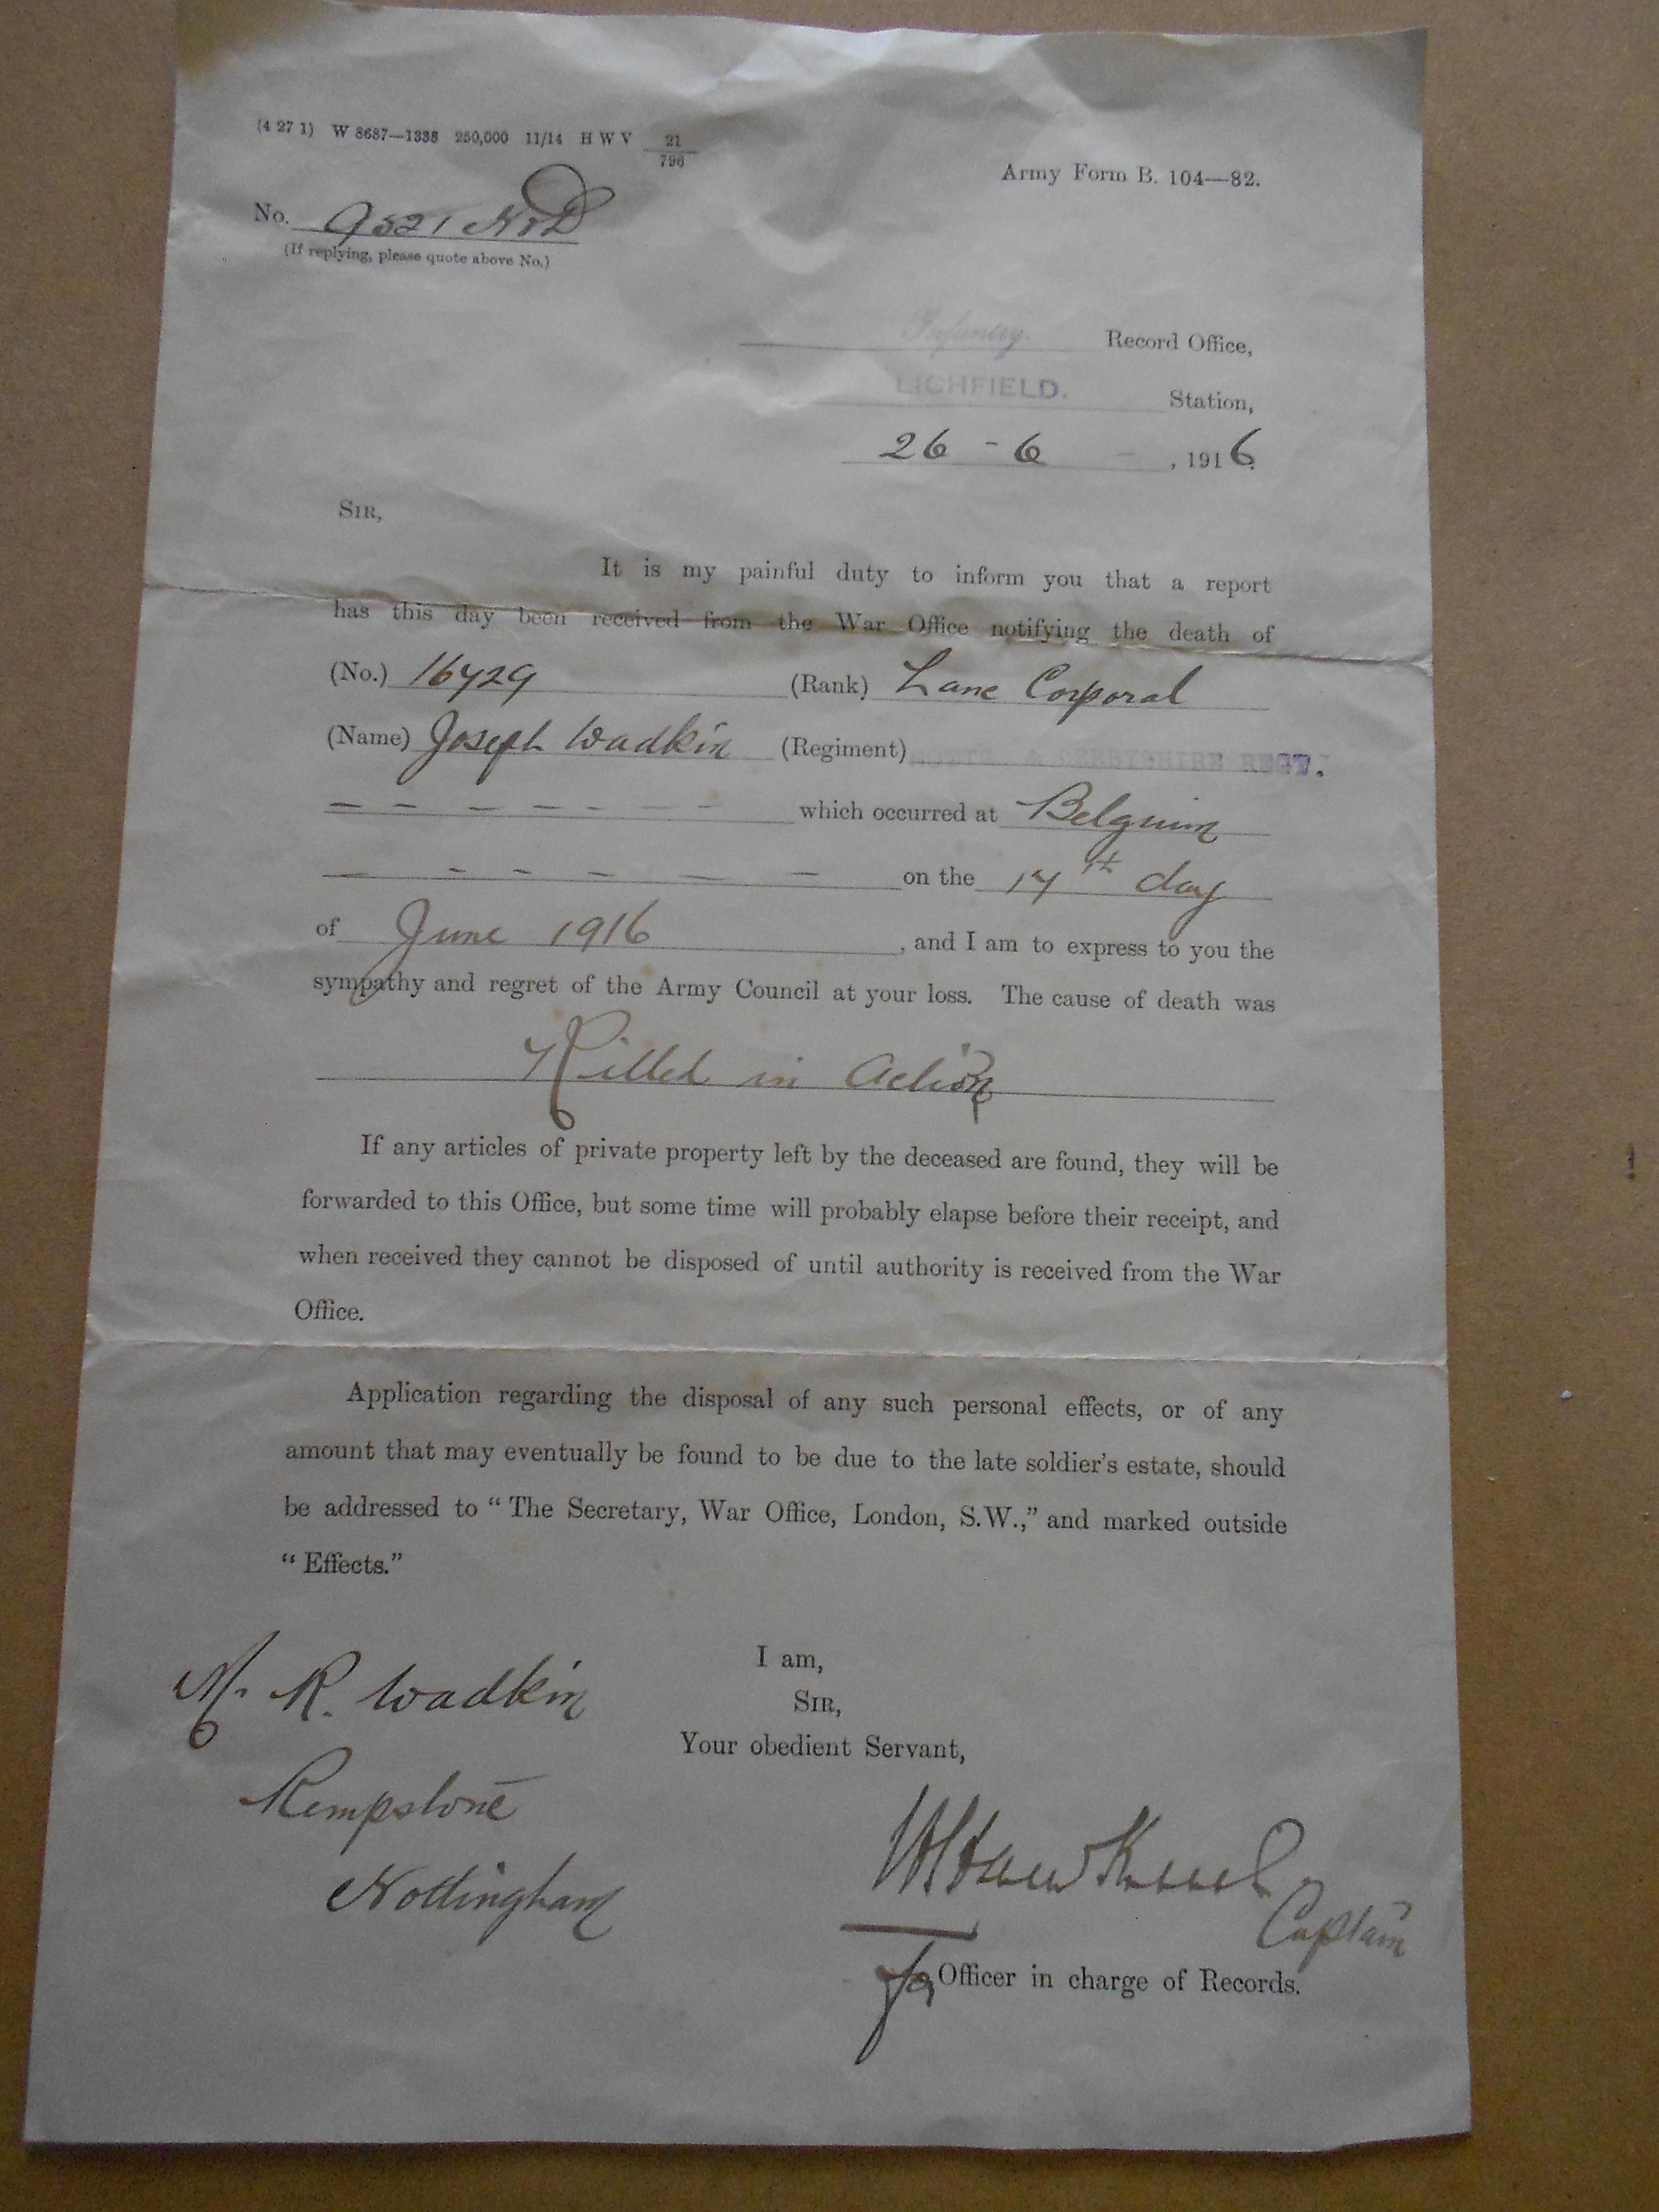 (4 27 1) W 8687—1338 250,000 11/14 H W V 21/796
Army Form B. 104—82.
No. 9521 N&D
(If replying, please quote above No.)
Infantry. Record Office,
LICHFIELD. Station,
26 - 6 - , 1916.
SIR,
It is my painful duty to inform you that a report
has this day been received from the War Office notifying the death of
(No.) 16729 (Rank) Lance Corporal
(Name) Joseph Wadkin (Regiment) NOTTS. & DERBYSHIRE REGT.
which occurred at Belgium
on the 17th day
of June 1916, and I am to express to you the
sympathy and regret of the Army Council at your loss. The cause of death was
Killed in Action
If any articles of private property left by the deceased are found, they will be
forwarded to this Office, but some time will probably elapse before their receipt, and
when received they cannot be disposed of until authority is received from the War
Office.
Application regarding the disposal of any such personal effects, or of any
amount that may eventually be found to be due to the late soldier's estate, should
be addressed to “ The Secretary, War Office, London, S.W.,” and marked outside
“ Effects.”
Mr. R. Wadkin
Rempstone
Nottingham
I am,
SIR,
Your obedient Servant,
Captain
for Officer in charge of Records.